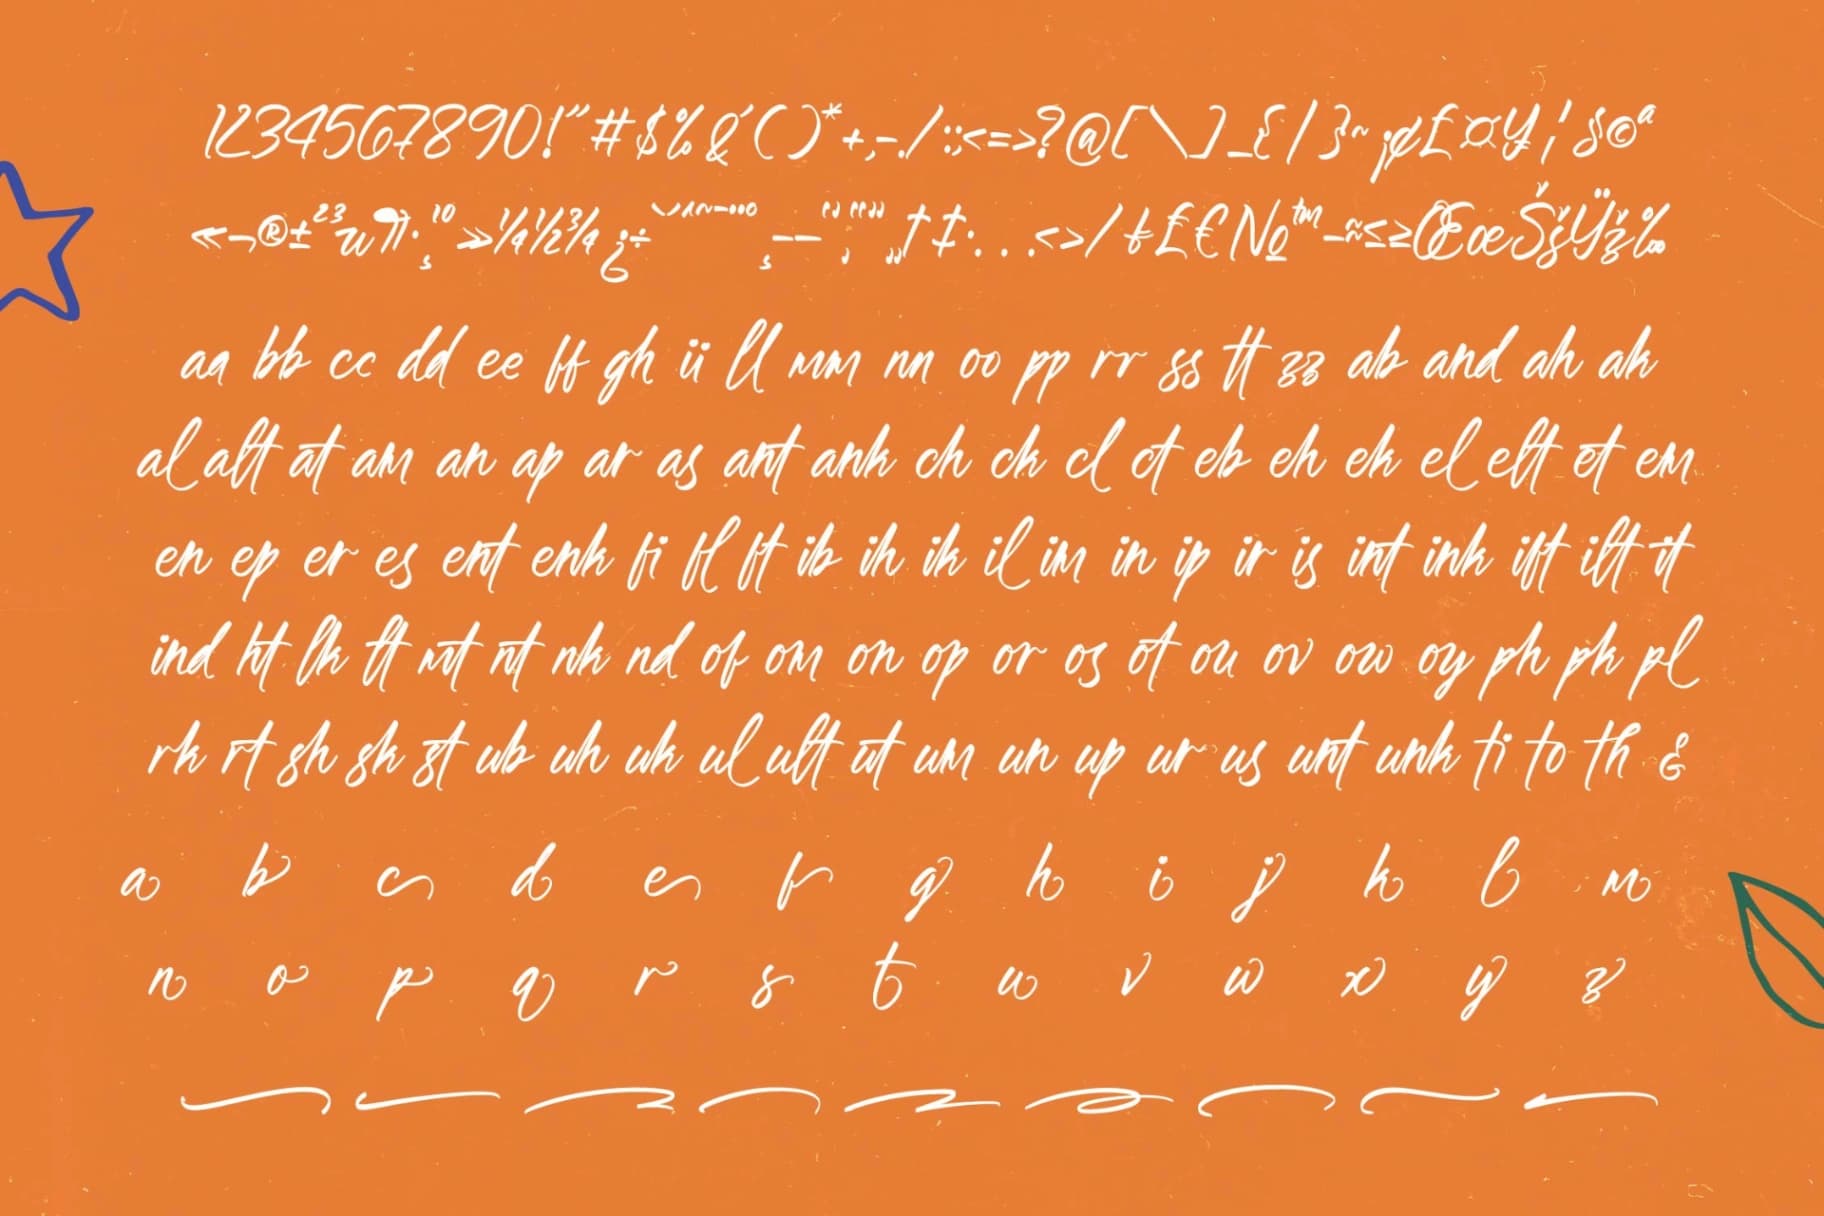 1234567890!"#$%&'()*+,-./:;<=>?@[\]_{|}~¡¢£¤¥¦§©ª
«¬®±²³µ¶·¸¹º»¼½¾¿÷ˇ^~¯˙˚¸–—‘’‚“”„†‡•...‹›⁄ƒ₤€№™−≈≤≥ŒœŠšŸž‰
aa bb cc dd ee ff gh ii ll mm nn oo pp rr ss tt zz ab and ah ak
al alt at am an ap ar as ant ank ch ck cl ct eb eh ek el elt et em
en ep er es ent enk fi fl ft ib ih ik il im in ip ir is int ink ift ilt it
ind ht lk lt mt nt nk nd of om on op or os ot ou ov ow oy ph pk pl
rk rt sh sk st ub uh uk ul ult ut um un up ur us unt unk ti to th &
a b c d e f g h i j k l m
n o p q r s t u v w x y z